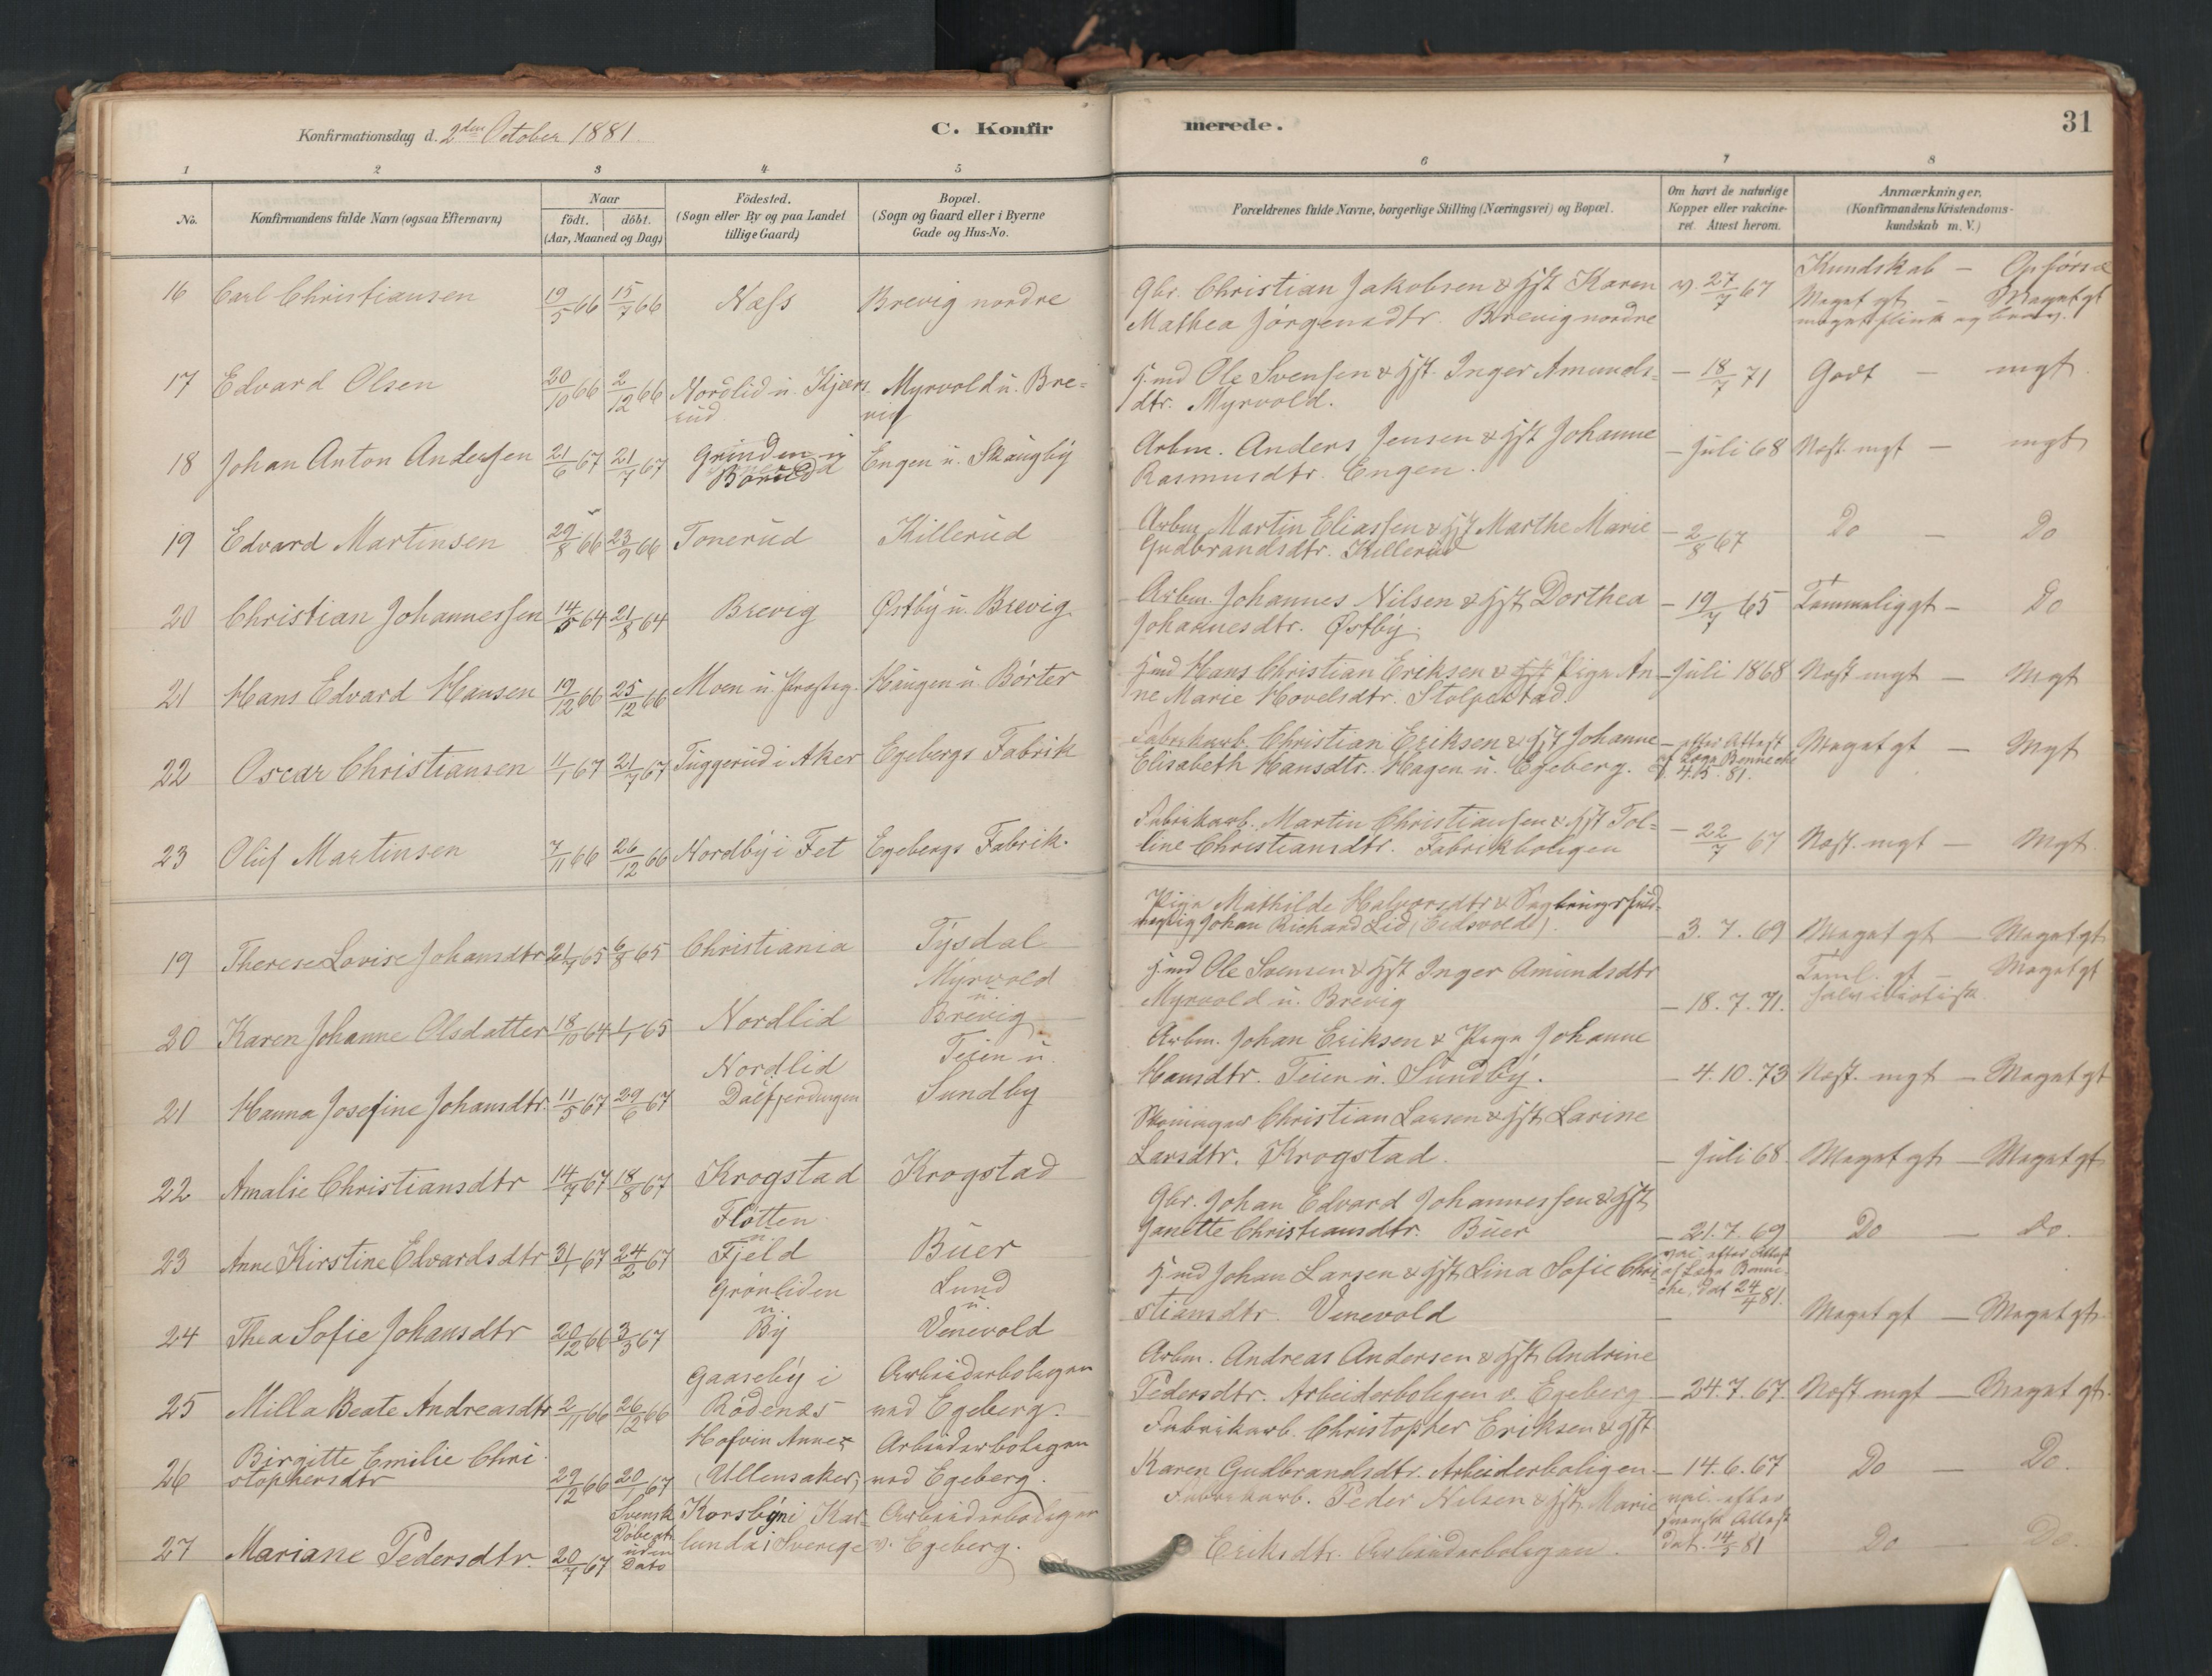 Konfirmationsdag d. 2den October 1881.
C. Konfirmerede.
31
1 2 3 4 5 6 7 8
No.
Konfirmandens fulde Navn (ogsaa Efternavn)
Naar
födt. döbt.
(Aar, Maaned og Dag)
Födested.
(Sogn eller By og paa Landet
tillige Gaard)
Bopæl.
(Sogn og Gaard eller i Byerne
Gade og Hus-No.
Forældrenes fulde Navne, borgerlige Stilling (Næringsvei) og Bopæl.
Om havt de naturlige
Kopper eller vakcine-
ret. Attest herom.
Anmærkninger.
(Konfirmandens Kristendoms-
kundskab m. V.)
Kundskab — Opførsel
16 Carl Christiansen 19/5 66 15/7 66 Næss Brevig nordre Gbr. Christian Jakobsen & Hst Karen v. 27/7 67 Meget gt — Meget gt
Mathea Jørgensdtr. Brevig nordre meget flink og brav.
17 Edvard Olsen 20/10 66 2/12 66 Nordlid u. Kjærs- Myrvold u. Bre- Hmd Ole Svensen & Hst. Inger Amunds- — 18/7 71 Godt — mgt.
rud vig dtr. Myrvold.
18 Johan Anton Andersen 21/6 67 21/7 67 Grinden u Engen u. Skaugby Arbm. Anders Jensen & Hst Johanne — Juli 68 Næst. mgt — mgt
Børud Rasmusdtr. Engen.
19 Edvard Martinsen 29/8 66 23/9 66 Tonerud Killerud Arbm. Martin Eliassen & Hst Marthe Marie — 2/8 67 Do — Do
Gudbrandsdtr. Killerud
20 Christian Johannessen 14/5 64 21/8 64 Brevig Østby u. Brevig Arbm. Johannes Nilsen & Hst Dorthea — 19/7 65 Temmelig gt — Do
Johannesdtr. Østby.
21 Hans Edvard Hansen 19/12 66 25/12 66 Moen u. Præsteg. Haugen u. Børter Hmd Hans Christian Eriksen & Hst Pige An- — Juli 1868 Næst mgt — Mgt
ne Marie Hovelsdtr. Stolpestad.
22 Oscar Christiansen 11/1 67 21/7 67 Tuggerud i Aker Egebergs Fabrik Fabrikarb. Christian Eriksen & Hst Johanne — efter Attest Meget gt — Mgt
Elisabeth Hansdtr. Hagen u. Egeberg. af Læge Bennecke
d. 4.5.81.
23 Oluf Martinsen 7/11 66 26/12 66 Nordby i Fet Egebergs Fabrik. Fabrikarb. Martin Christiansen & Hst Tol- — 22/7 67 Næst. mgt — Mgt
line Christiansdtr. Fabrikboligen
19 Therese Lovise Johansdtr 21/7 65 6/8 65 Christiania Tysdal Pige Mathilde Halvorsdtr &
Johan Richard Lid (Eidsvold). — 3.7.69 Meget gt — Meget gt
20 Karen Johanne Olsdatter 18/10 64 1/1 65 Nordlid Myrvold
u.
Brevig Hmd Ole Svensen & Hst Inger Amundsdtr
Myrvold u. Brevig — 18.7.71. Teml. gt — Meget gt
halv idiotisk
21 Hanna Josefine Johansdtr. 11/5 67 29/6 67 Nordlid
Dalfjerdingen Teien u.
Sundby Arbm. Johan Eriksen & Pige Johanne
Hansdtr. Teien u. Sundby. — 4.10.73 Næst. mgt — Meget gt
22 Amalie Christiansdtr 14/7 67 18/8 67 Krogstad Krogstad Christian Larsen & Hst Larine
Larsdtr. Krogstad. — Juli 68. Meget gt — Meget gt
23 Anne Kirstine Edvardsdtr 3/1 67 24/2 67 Flotten
u.
Fjeld Buer Gbr. Johan Edvard Johannessen & Hst
Janette Christiansdtr. Buer — 21.7.69 Do — Do.
24 Thea Sofie Johansdtr 20/12 66 3/3 67 Grønliden
u.
By Lund
u.
Venevold Hmd Johan Larsen & Hst Lina Sofie Chri-
stiansdtr. Venevold vac. efter Attest
af Læge Benne-
cke, dat 24/4 81. Meget gt — Meget gt
25 Milla Beate Andreasdtr 2/11 66 26/12 66 Gaaseby i
Rødenæs Arbeiderboligen
ved Egeberg. Arbm. Andreas Andersen & Hst Andrine
Pedersdtr. Arbeiderboligen v. Egeberg — 24.7.67. Næst mgt — Meget gt.
26 Birgitte Emilie Chri-
stophersdtr 29/12 66 20/1 67 Hofvin Annex
(Ullensaker) Arbeiderboligen
ved Egeberg. Fabrikarb. Christopher Eriksen & Hst
Karen Gudbrandsdtr. Arbeiderboligen — 14.6.67 Do — Do.
27 Mariane Pedersdtr. 20/7 67 Svensk
Døbeatt.
uden
Dato Korsbyn i Kar-
landa i Sverige Arbeiderboligen
v. Egeberg. Fabrikarb. Peder Nilsen & Hst Marie
Eriksdtr. Arbeiderboligen. vac. efter
svensk Attest
dat. 14/5 81 Do — Do.